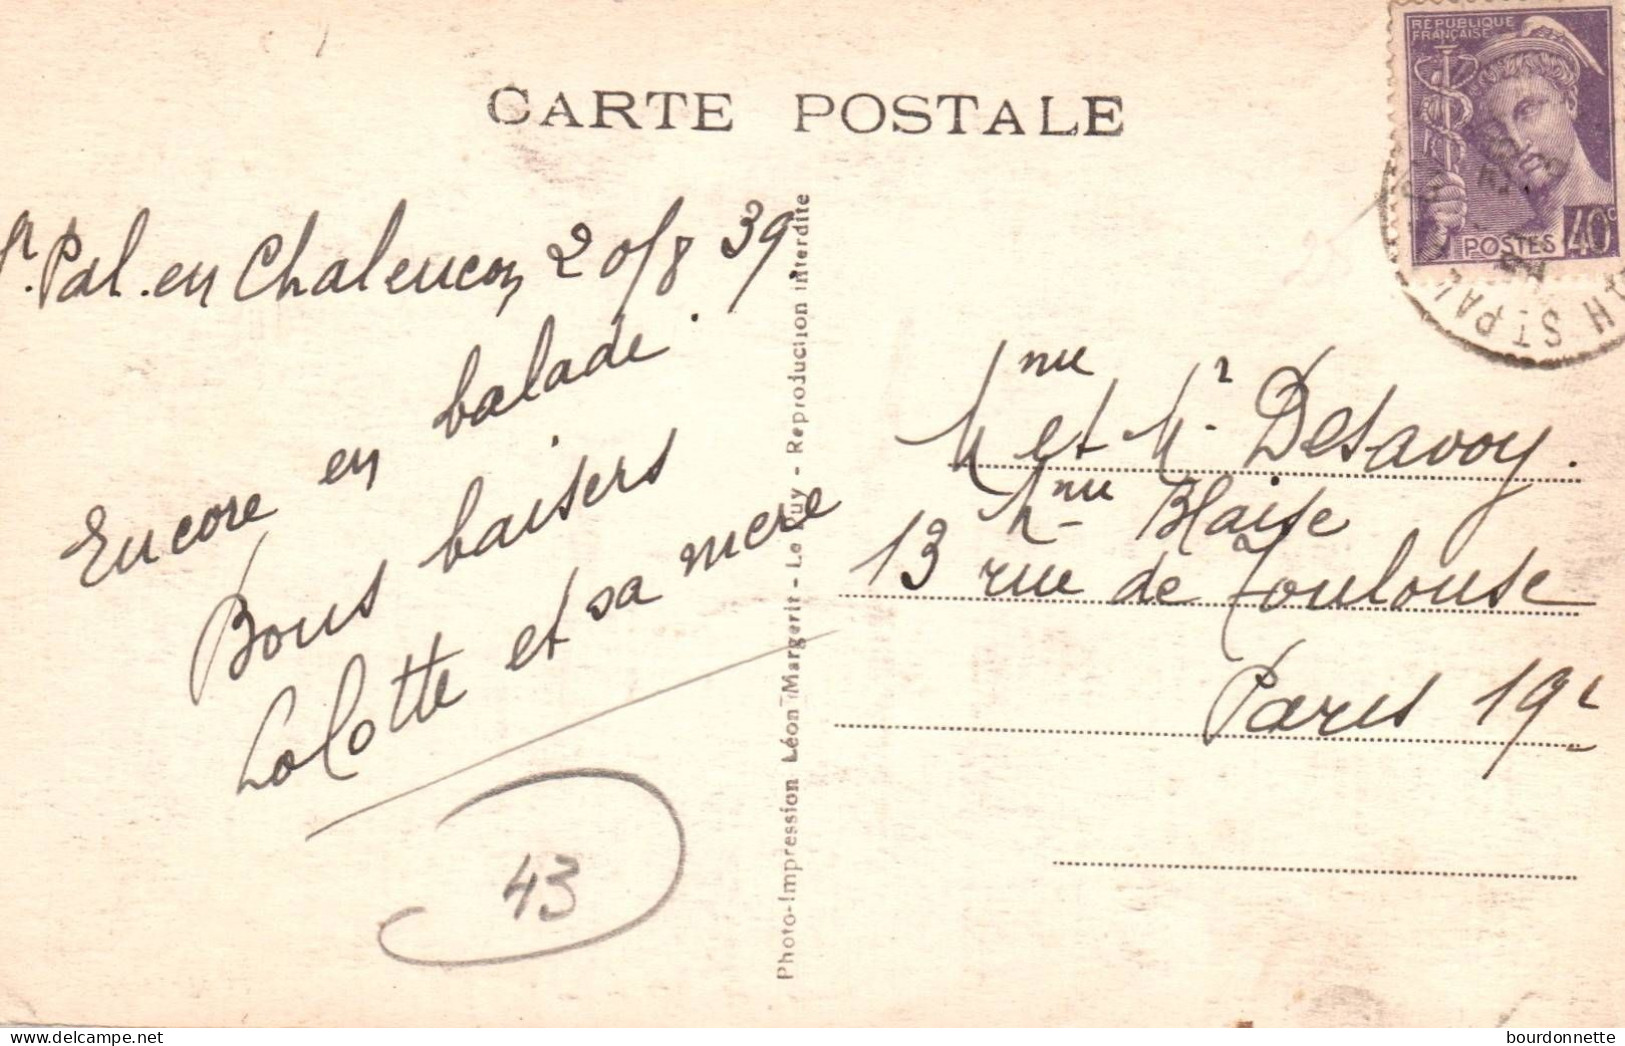 CARTE POSTALE
RÉPUBLIQUE
FRANÇAISE
POSTES 40c
ST PAL
St. Pal. en Chalencon 20/8 39
Encore en balade.
Bons baisers
Lolotte et sa mere
43
Photo-Impression Léon Margerit - Le Puy - Reproduction interdite
Mme et Mr Desavoy.
Mme Blaise
13 rue de Toulouse
Paris 19e
bourdonnette